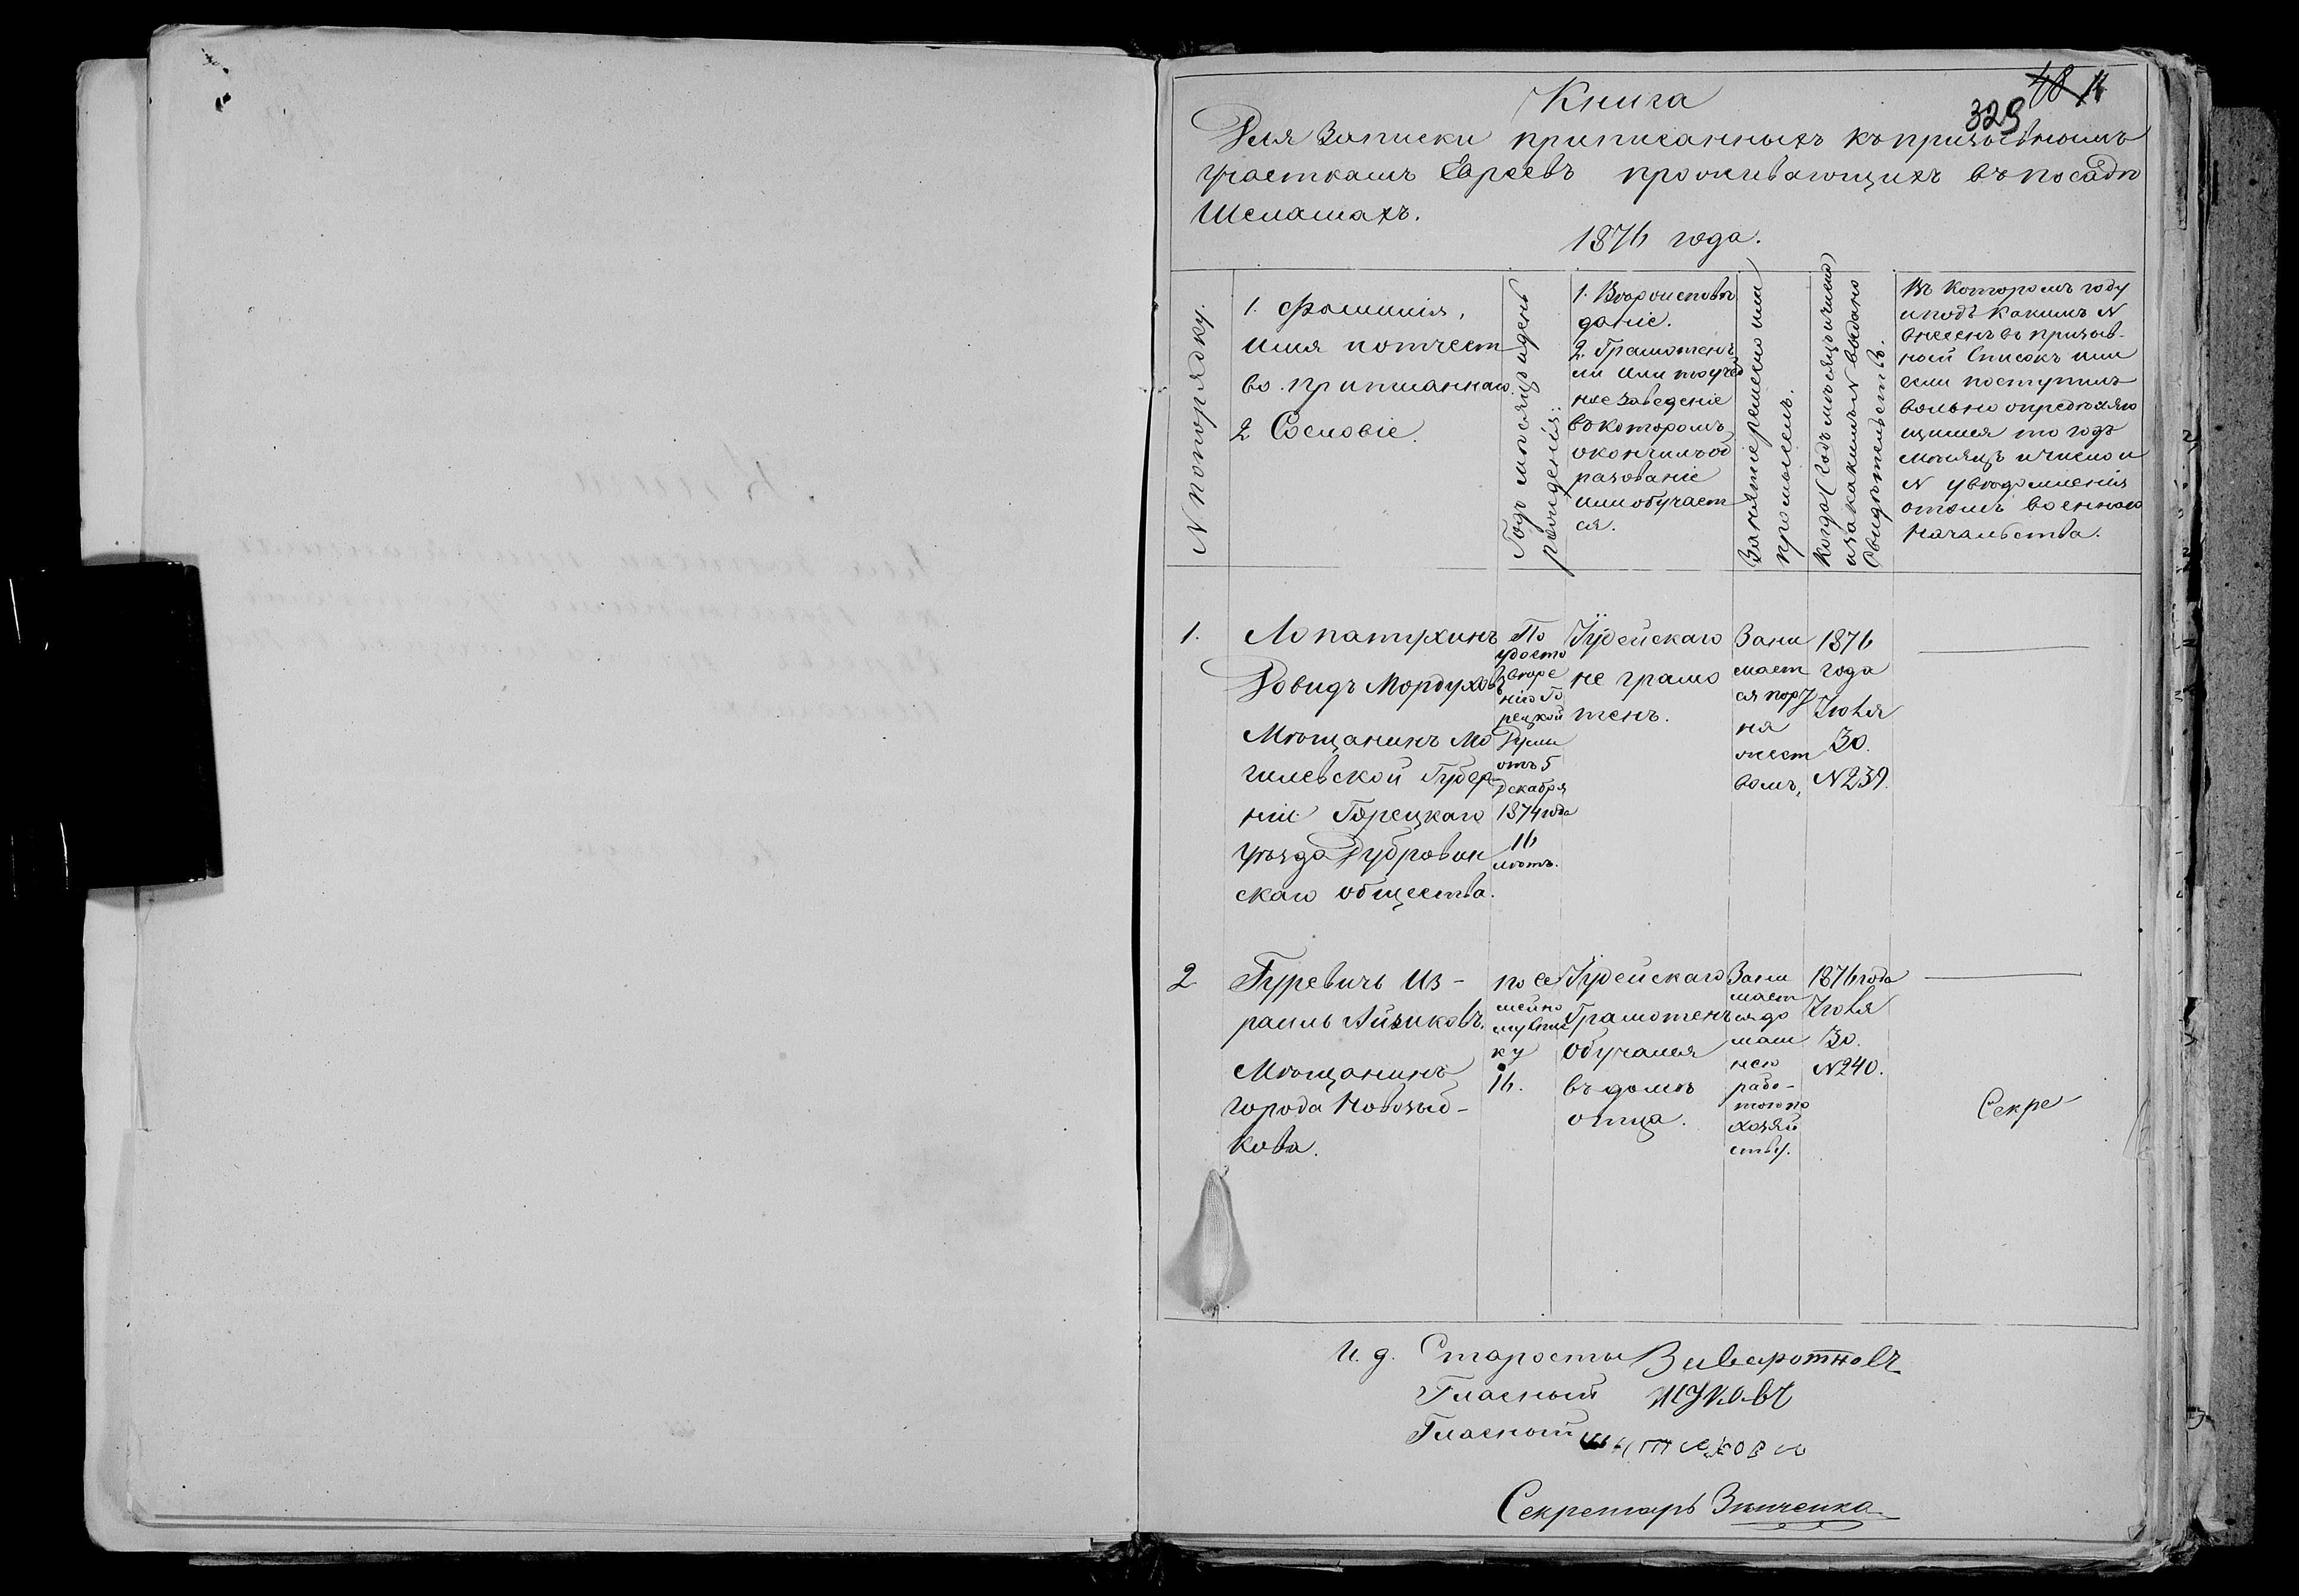 48 11
329
Книга
Для Записки приписанныхъ къ призывнымъ
участкамъ Евреевъ проживающихъ въ посадѣ
Шеломахъ.
1876 года.
N попорядку.
1. Фамилія,
имя потчест
во. приписаннаго.
2 Сословіе.
Годъ мѣсяцъ идень
рожденія:
1. Вѣроисповѣ
даніе.
2. Грамотенъ
ли или то учеб
ное заведеніе
въ которомъ
окончилъ об
разованіе
или обучает
ся.
Занятіе ремесло или
промыселъ.
Когда (годъ мѣсяцъ ичисло)
иза какимъ N выдано
Свидѣтельство.
Въ которомъ году
иподъ какимъ N
внесенъ въ призыв-
ной Списокъ или
если поступилъ
вольно опредѣляю
щимся то годъ
мѣсяцъ ичисло и
N увѣдомленія
отомъ военнаго
Начальства.
1.
Лопатухинъ
Довидъ Мордухов
Мѣщанинъ Мо
гилевской Губер-
ніи Горецкаго
уѣзда Дубровин
скаго общества.
По
удосто
вѣре
нію Го
рецкой
Думы
отъ 5
Декабря
1874 года
16
лѣтъ.
Іудейскаго
не грамо
тенъ.
Зани
мает
ся порт
ня
жест
вомъ,
1876
года
Іюля
30.
N239.
2
Гуревичъ Из-
раиль Айзиковъ.
Мѣщанинъ
города Новозыб-
кова.
по се
мейно
му спис
ку
16.
Іудейскаго
Грамотенъ
обучался
въ домѣ
отца.
Зани
мает
ся до
маш
нею
рабо-
тою по
хозяй
ству.
1876 года
Іюля
30.
N240.
Секре
И. д. Старосты
Гласный Жуковъ
Гласный
Секретарь Зинченко